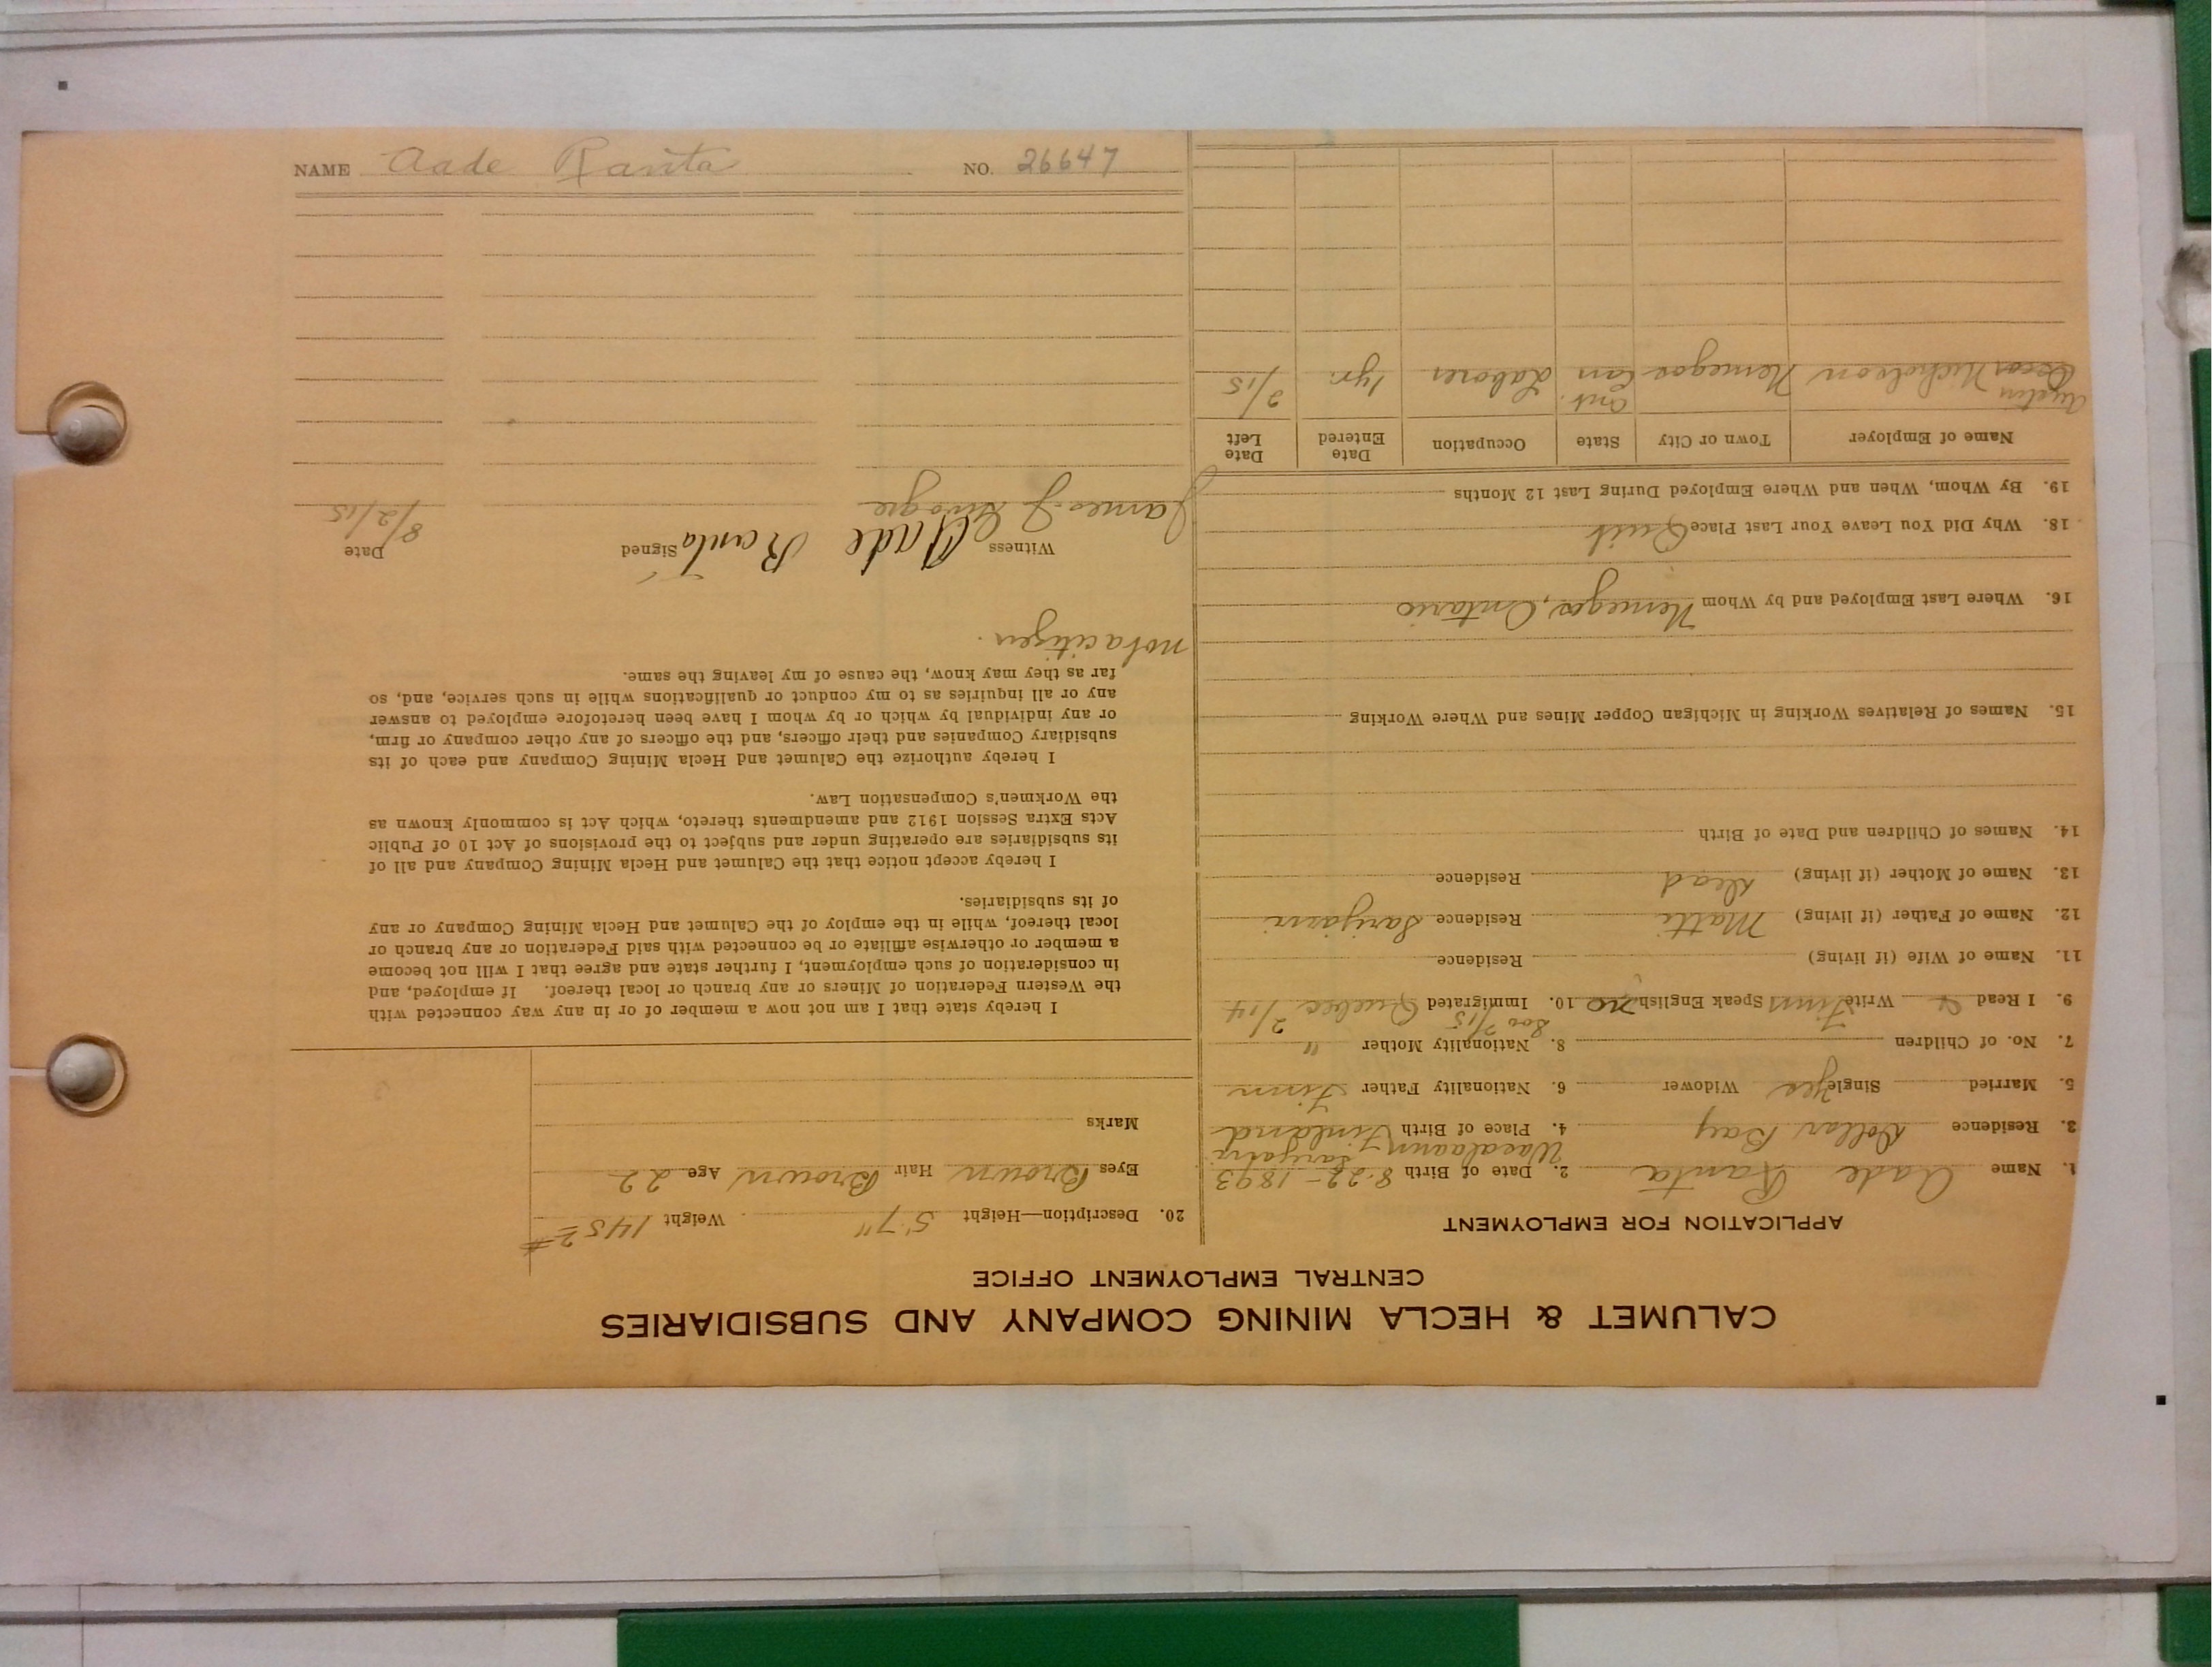 NAME Aade Ranta NO. 26647
CALUMET & HECLA MINING COMPANY AND SUBSIDIARIES
CENTRAL EMPLOYMENT OFFICE
APPLICATION FOR EMPLOYMENT
1. Name Aade Ranta 2. Date of Birth 8-22-1893
3. Residence Dollar Bay 4. Place of Birth Finland
5. Married Single Yes Widower 6. Nationality Father Finn
7. No. of Children 8. Nationality Mother "
Soo 7/15
9. I Read & Write Finn Speak English no 10. Immigrated Quebec 2/14
11. Name of Wife (if living) Residence
12. Name of Father (if living) Matti Residence
13. Name of Mother (if living) Dead Residence
14. Names of Children and Date of Birth
15. Names of Relatives Working in Michigan Copper Mines and Where Working
16. Where Last Employed and by Whom Nemegos, Ontario
18. Why Did You Leave Your Last Place Quit
19. By Whom, When and Where Employed During Last 12 Months
Name of Employer Town or City State Occupation Date Entered Date Left
Austin Ont.
Nicholson Nemegos Can Laborer 1 yr. 2/15
20. Description—Height 5'7" Weight 145#
Eyes Brown Hair Brown Age 22
Marks
I hereby state that I am not now a member of or in any way connected with
the Western Federation of Miners or any branch or local thereof. If employed, and
in consideration of such employment, I further state and agree that I will not become
a member or otherwise affiliate or be connected with said Federation or any branch or
local thereof, while in the employ of the Calumet and Hecla Mining Company or any
of its subsidiaries.
I hereby accept notice that the Calumet and Hecla Mining Company and all of
its subsidiaries are operating under and subject to the provisions of Act 10 of Public
Acts Extra Session 1912 and amendments thereto, which Act is commonly known as
the Workmen's Compensation Law.
I hereby authorize the Calumet and Hecla Mining Company and each of its
subsidiary Companies and their officers, and the officers of any other company or firm,
or any individual by which or by whom I have been heretofore employed to answer
any or all inquiries as to my conduct or qualifications while in such service, and, so
far as they may know, the cause of my leaving the same.
not a citizen.
Witness Aade Ranta Signed Date
James J. 8/2/15